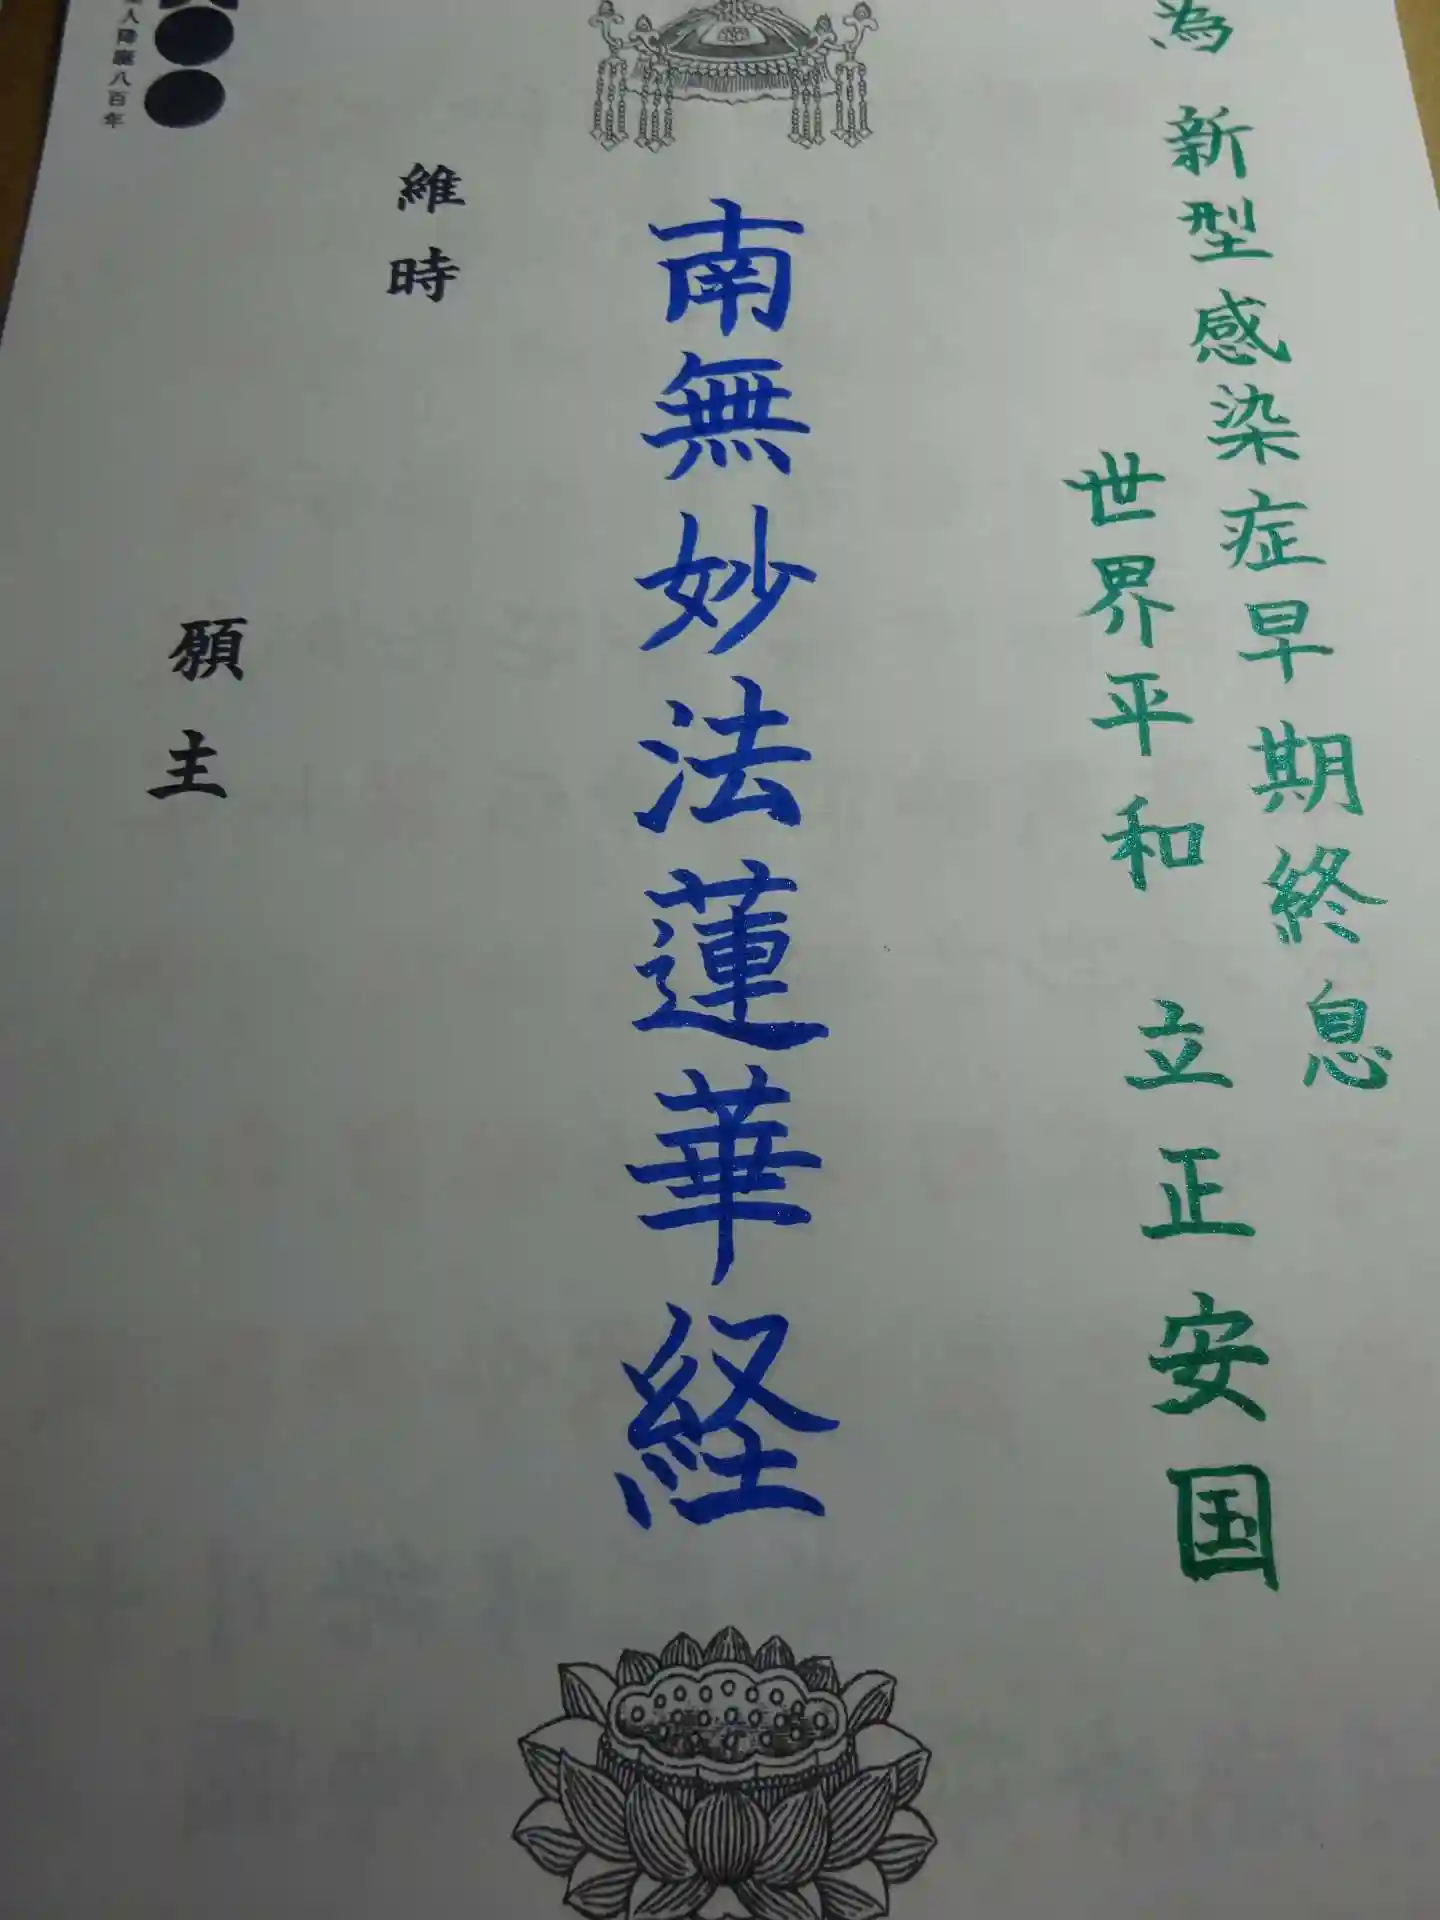 為 新型感染症早期終息
世界平和 立正安国
南無妙法蓮華経
維時
願主
人降誕八百年